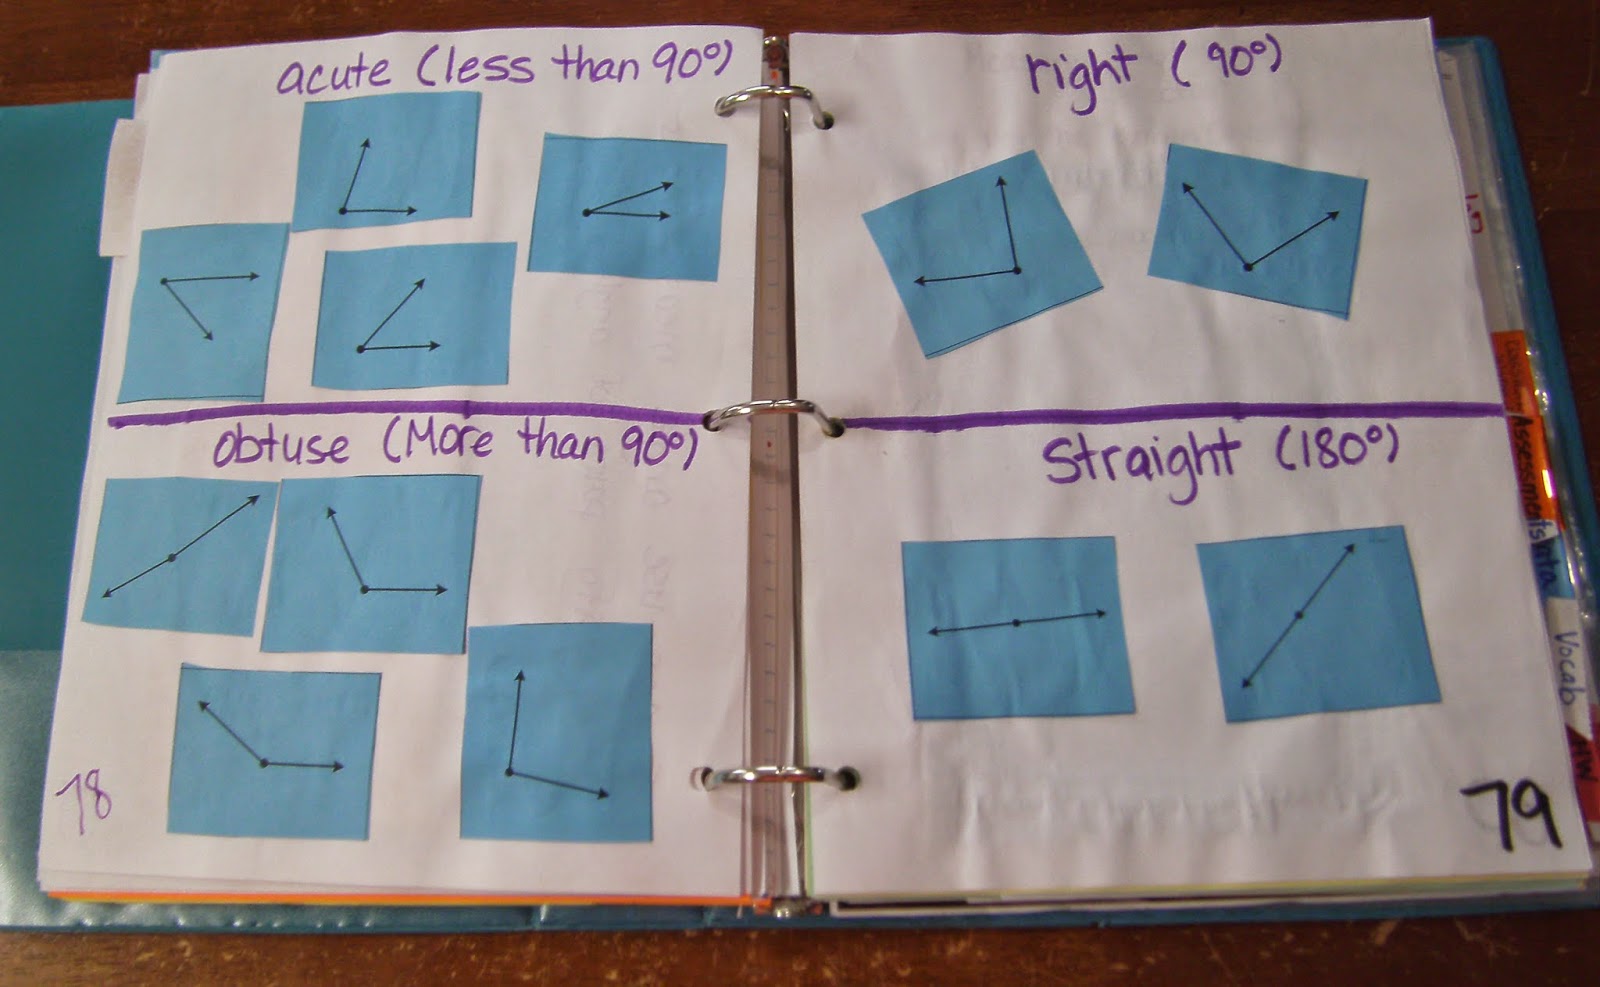 acute (less than 90°)
obtuse (More than 90°)
78
right (90°)
Straight (180°)
79
Assessments
Vocab
HW